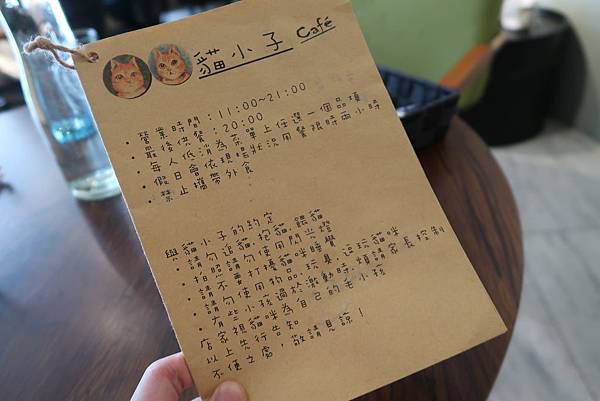 貓小子 Café
・營業時間：11:00~21:00
・最後供餐：20:00
・每人低消為菜單上任選一個品項
・假日會依現場狀況用餐限時兩小時
・禁止攜帶外食
與貓小子的約定
・請勿追貓、抱貓、餵貓
・拍照請勿使用閃光燈
・請不要打擾貓咪睡覺
・請勿使用物品、玩具逗玩貓咪
・有些小孩過於激動時，煩請家長控制
店家視貓咪為自己的毛小孩
以上先行告知
不便之處，敬請見諒！